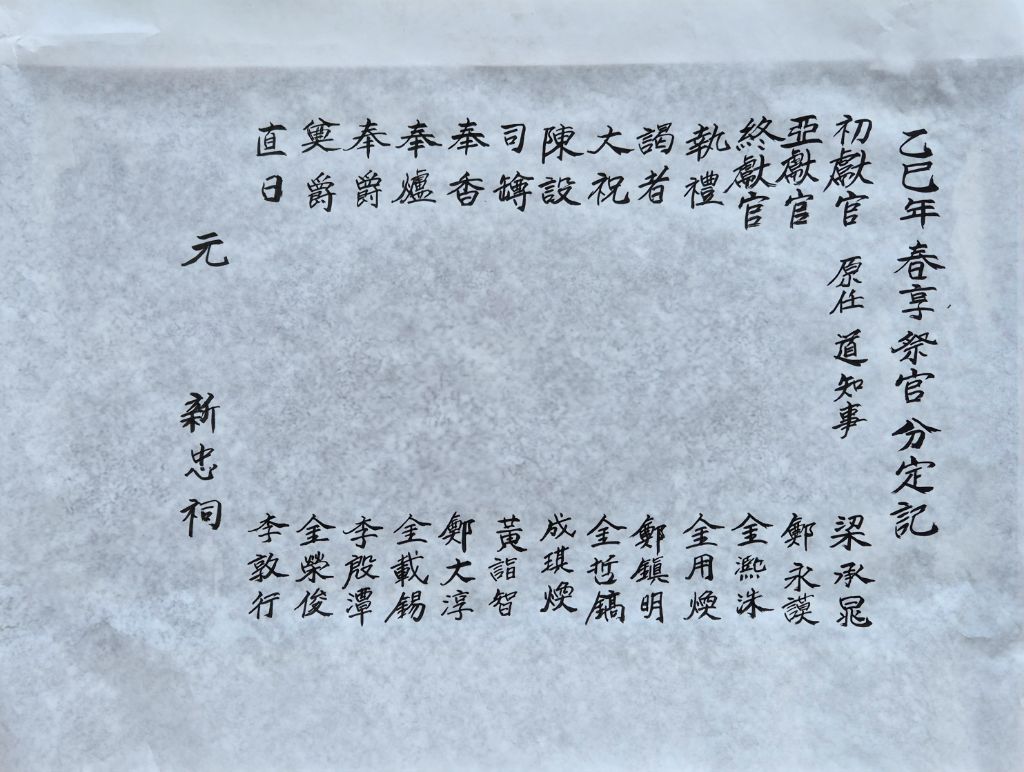 乙巳年 春享祭官 分定記
初獻官 原任 道知事 梁承晃
亞獻官 鄭永謨
終獻官 金熙洙
執禮 金用煥
謁者 鄭鎭明
大祝 金哲鎬
陳設 成琪煥
司罇 黃詣智
奉香 鄭大淳
奉爐 金載錫
奉爵 李殷潭
奠爵 金榮俊
直日 李敦行
元 新忠祠